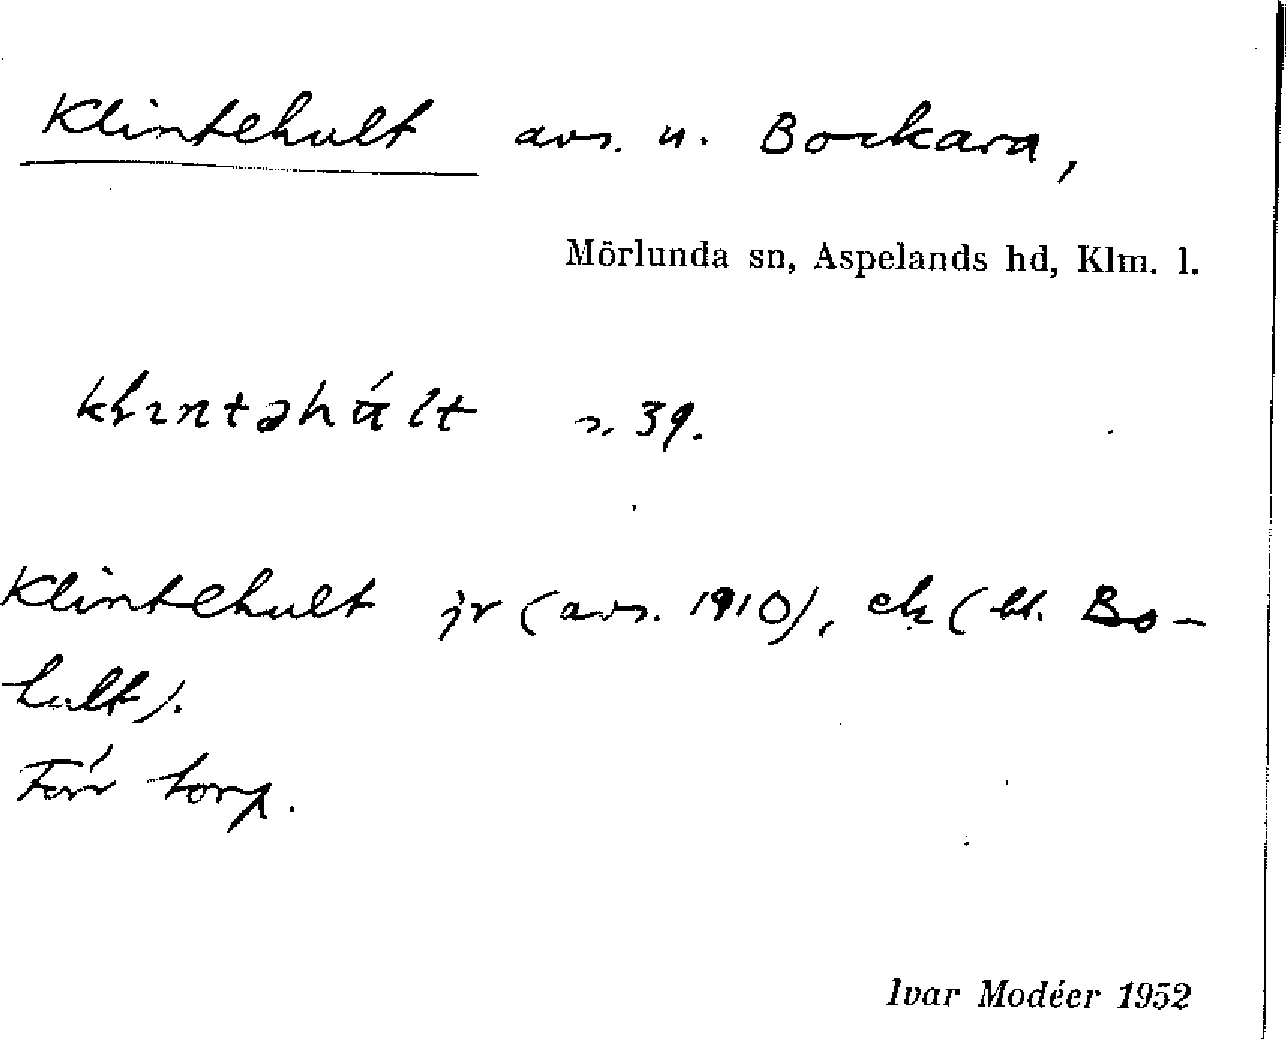 Klintehult avs. u. Bockara,
Mörlunda sn, Aspelands hd, Klm. l.
s. 39.
Klintehult jr (avs. 1910), ek (bl. Bo-
hult).
Förr torp.
Ivar Modéer 1952